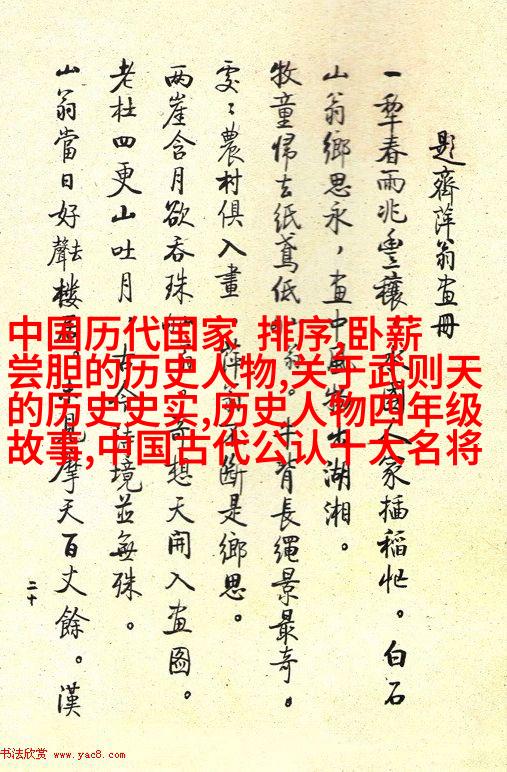 題齊萍翁畫冊
一犁春雨兆豐穰 國人家插稻忙。白石
山翁鄉思永，畫中風物出湖湘。
牧童歸去紙鳶低 翁。牛背長繩景最奇。
處〻農村俱入畫 萍翁不斷是鄉思。
两崖含月欲吞珠 奇想天開入畫圖。
老杜四更山吐月，古今詩境並無殊。
山翁當日好去聲樓居。未見摩天百丈餘。漢
二十
中国历代国家 排序,卧薪
尝胆的历史人物,关于武则天
的历史史实,历史人物四年级
故事,中国古代公认十大名将
书法欣赏 www.yac8.com